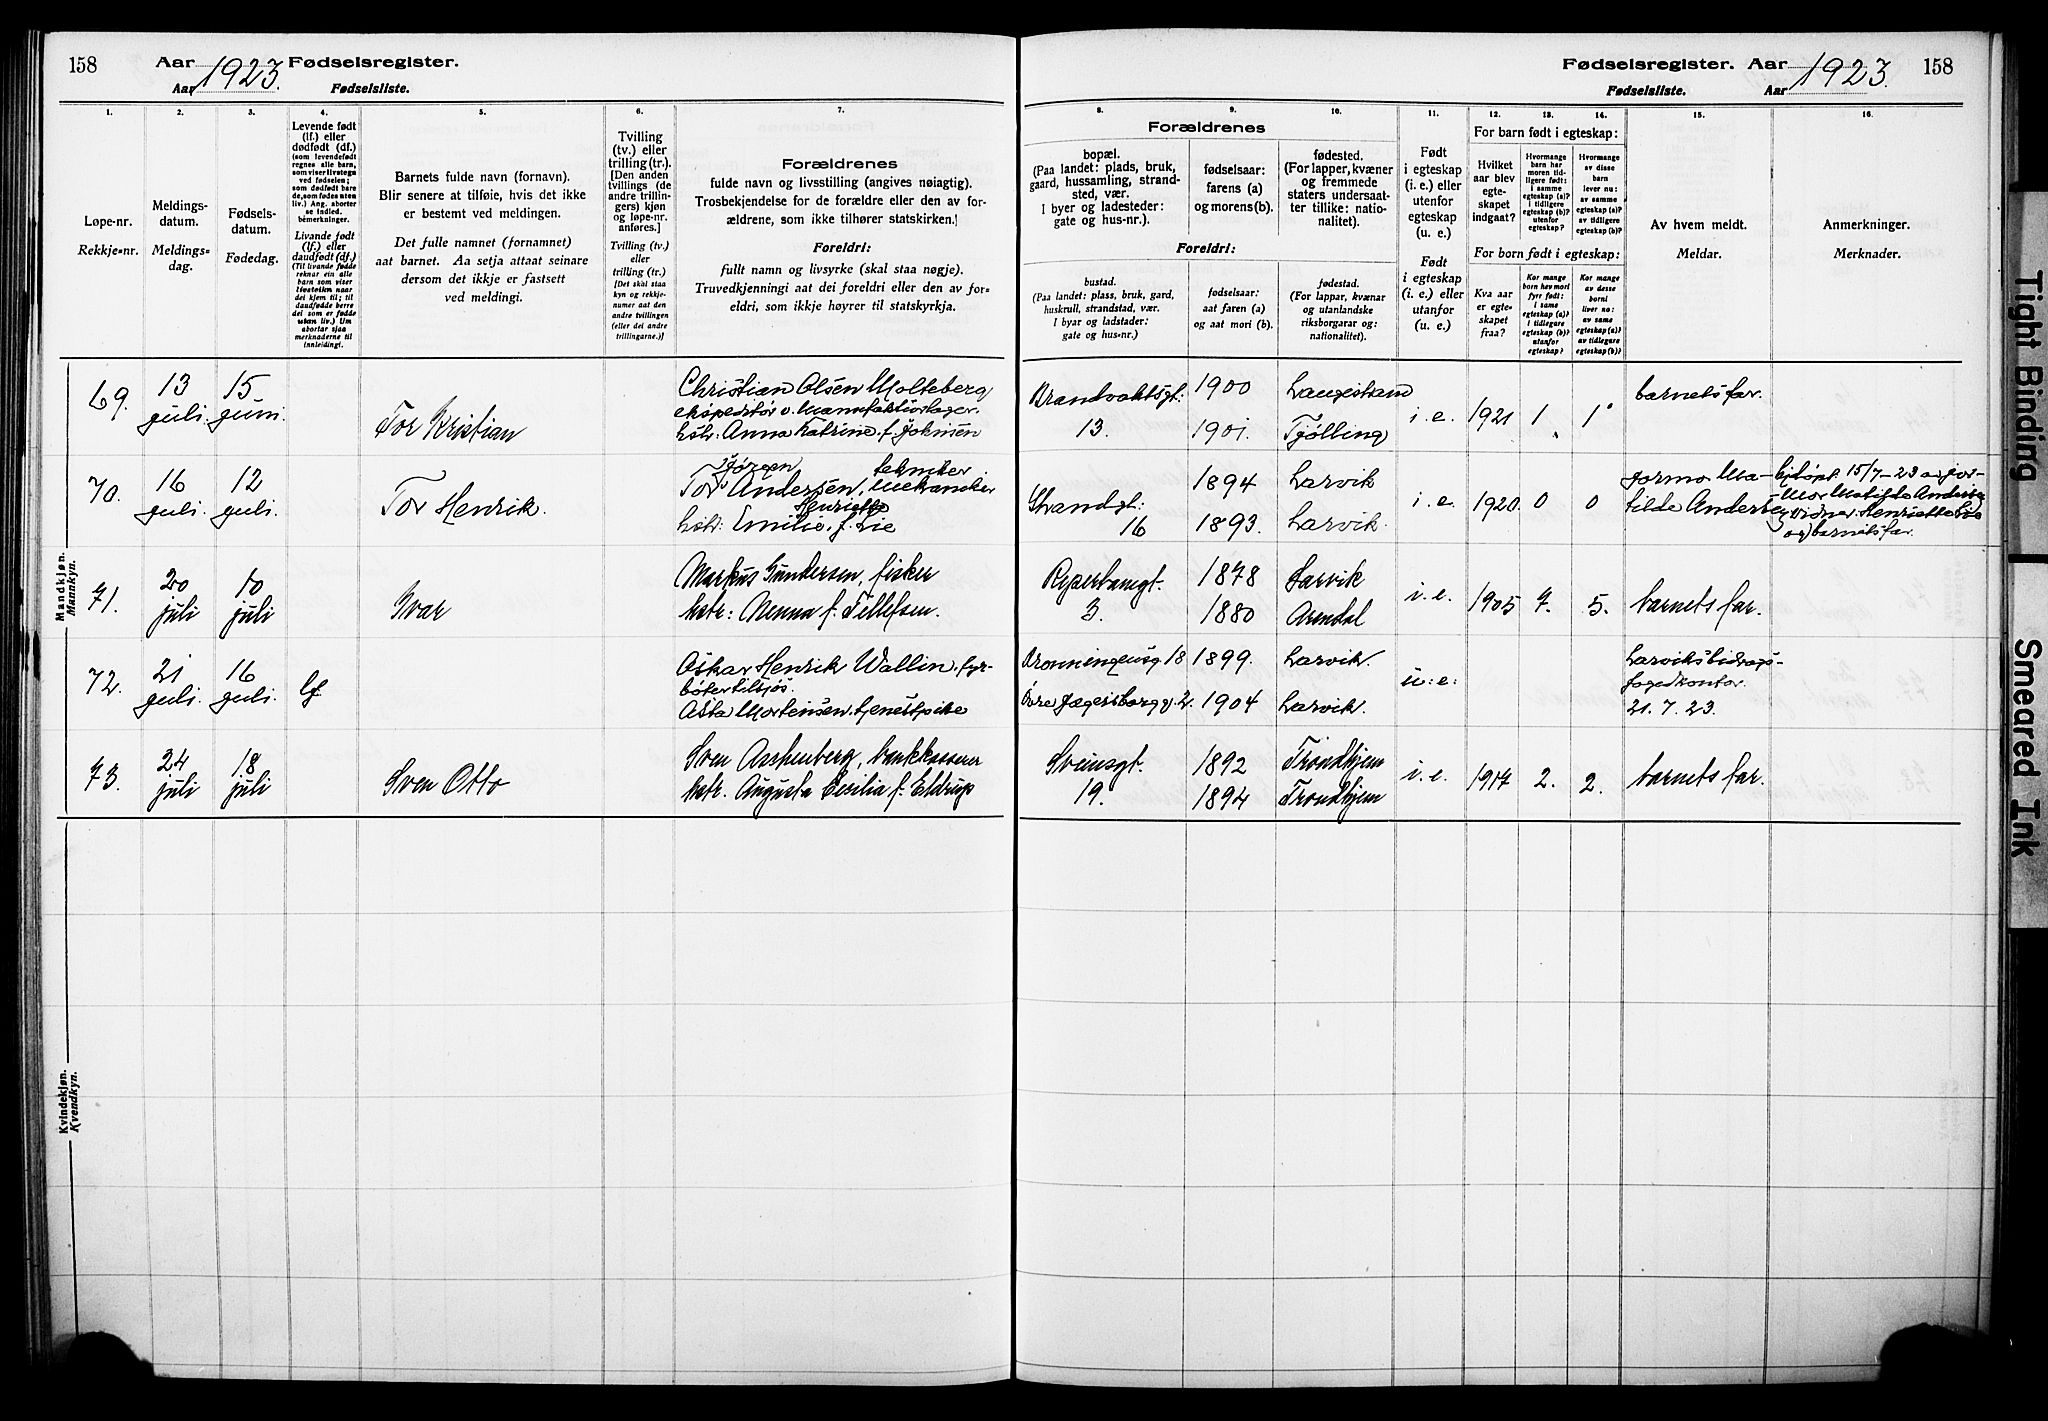 158 Aar 1923. Fødselsregister.
Aar Fødselsliste.
Fødselsregister. Aar 1923. 158
Fødselsliste. Aar
1. 2. 3. 4. 5. 6. 7.
8. 9. 10. 11. 12. 13. 14. 15. 16.
Løpe-nr.
Rekkje-nr.
Meldings-
datum.
Meldings-
dag.
Fødsels-
datum.
Fødedag.
Levende født
(lf.) eller
dødfødt (df.)
(som levendefødt
regnes alle barn,
som viser livstegn
ved fødselen;
som dødfødt bare
de, som fødes uten
liv.) Ang. aborter
se indled.
bemerkninger.
Livande født
(lf.) eller
daudfødt (df.)
(Til livande fødde
reknar ein alle
barn som viser
livsteikn naar
dei kjem til; til
daudfødde berre
dei som er fødde
utan liv.) Um
abortar sjaa
merknaderne til
innleidingi.
Barnets fulde navn (fornavn).
Blir senere at tilføie, hvis det ikke
er bestemt ved meldingen.
Det fulle namnet (fornamnet)
aat barnet. Aa setja attaat seinare
dersom det ikkje er fastsett
ved meldingi.
Tvilling
(tv.) eller
trilling (tr.).
[Den anden
tvillings (de
andre trillin-
gers) kjøn
og løpe-nr.
anføres.]
Tvilling (tv.)
eller
trilling (tr.)
[Det skal staa
kyn og rekkje-
numer aat den
andre tvillingen
(eller dei andre
trillingarne.)]
Forældrenes
fulde navn og livsstilling (angives nøiagtig).
Trosbekjendelse for de forældre eller den av for-
ældrene, som ikke tilhører statskirken.
Foreldri:
fullt namn og livsyrke (skal staa nøgje).
Truvedkjenningi aat dei foreldri eller den av for-
eldri, som ikkje høyrer til statskyrkja.
Forældrenes
bopæl.
(Paa landet: plads, bruk,
gaard, hussamling, strand-
sted, vær.
I byer og ladesteder:
gate og hus-nr.).
fødselsaar:
farens (a)
og morens (b).
fødested.
(For lapper, kvæner
og fremmede
staters undersaat-
ter tillike: natio-
nalitet).
Foreldri:
bustad.
(Paa landet: plass, bruk, gard,
huskrull, strandstad, vær.
I byar og ladstader:
gate og hus-nr.)
fødselsaar:
aat faren (a)
og aat mori (b).
fødestad.
(For lappar, kvænar
og utanlandske
riksborgarar og:
nationalitet).
Født
i egteskap
(i. e.) eller
utenfor
egteskap
(u. e.)
Født
i egteskap
(i. e.) eller
utanfor
(u. e.)
For barn født i egteskap:
Hvilket
aar blev
egte-
skapet
indgaat?
Hvormange
barn har
moren tid-
ligere født:
i samme
egteskap (a)?
i tidligere
egteskap (b)?
utenfor
egteskap?
Hvormange
av disse
barn
lever nu:
av samme
egteskap (a)?
av tidligere
egteskap (b)?
For born født i egteskap:
Kva aar
er egte-
skapet
fraa?
Kor mange
born hev mori
fyrr født:
i same
egteskap (a)?
i tidlegare
egteskap (b)?
utanfor
egteskap?
Kor mange
av desse
borni
liver no:
av same
egteskap (a)?
av tidlegare
egteskap (b)?
Av hvem meldt.
Meldar.
Anmerkninger.
Merknader.
Mandkjøn.
Mannkyn.
69. 13 juli. 15 juni. Tor Kristian
Christian Olsen Molteberg
ekspeditör v. Manufakturlager.
hstr: Anna Katrine f. Johnsen
Brandvaktsgt: 13. 1900 1901. Langestrand Tjølling i. e. 1921 1 1 barnets far.
70. 16 juli. 12 juli. Tor Henrik.
Jørgen tekniker
Tor Andersen, Mekaniker
Henriette
hstr: Emilie, f. Lie
Strandgt. 16 1894 1893. Larvik Larvik. i. e. 1920. 0 0
jormo Ma-
tilde Andersen
Hjdøpt 15/7-23 av jor-
mor Matilde Andersen
vidner: Henriette Lie
og barnets far.
71. 20 juli 10 juli Ivar
Markus Gundersen, fisker
hstr: Menna f. Tellefsen.
3. 1878 1880 Larvik Arendal i. e. 1905 7. 5. barnets far.
72. 21 juli. 16 juli. lf
Oskar Henrik Wallin, fyr-
böter tilsjös.
Asta Mortensen, tjenestpike
Dronningensg 18 1899. Larvik.
Övre Jegersborgg. 2. 1904 Larvik. u. e.
Larviks bidrags-
fogedkontor.
21. 7. 23.
73. 24 juli 18 juli Sven Otto
Sven Aschenberg, bankkasserer
hstr. Augusta Cecilia f. Eldrup
Sveinsgt. 19. 1892 1894 Trondhjem Trondhjem i. e. 1917 2. 2. barnets far.
Kvindekjøn.
Kvendkyn.
Tight Binding
Smeared Ink